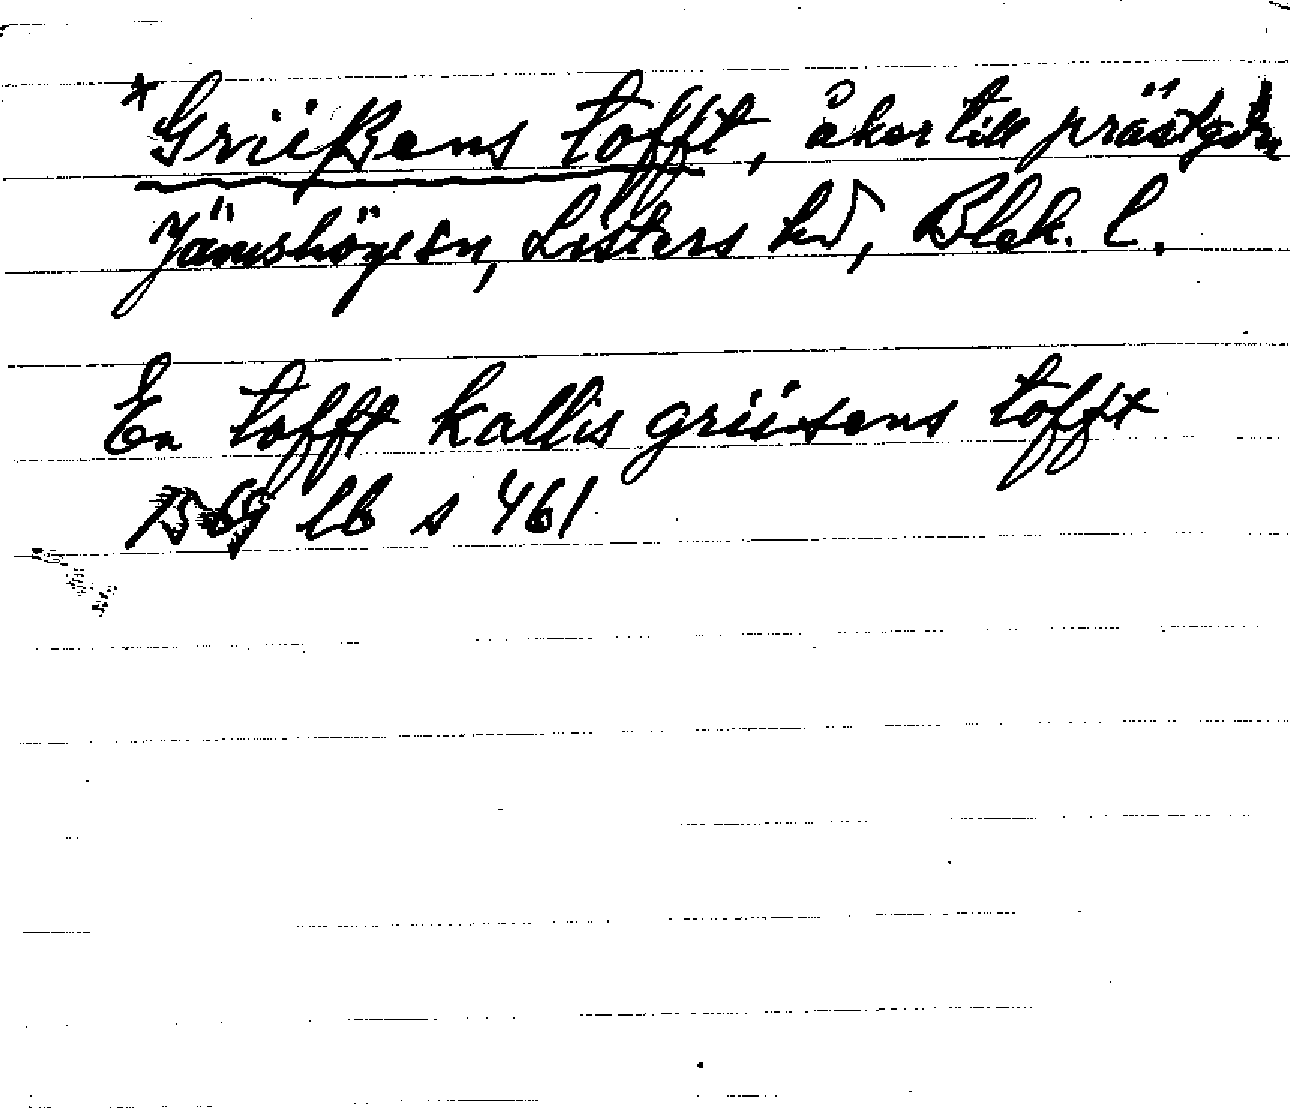 * Griißens tofft, åker till prästgdn
Jämshögs sn, Listers hd, Blek. l.
En tofft kallis griisens tofft
1569 lb s 461